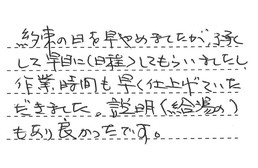 約束の日を早やめましたが、承
して早目に(日程)してもらいましたし
作業時間も早く仕上げていた
だきました。説明(給湯の)
もあり良かったです。